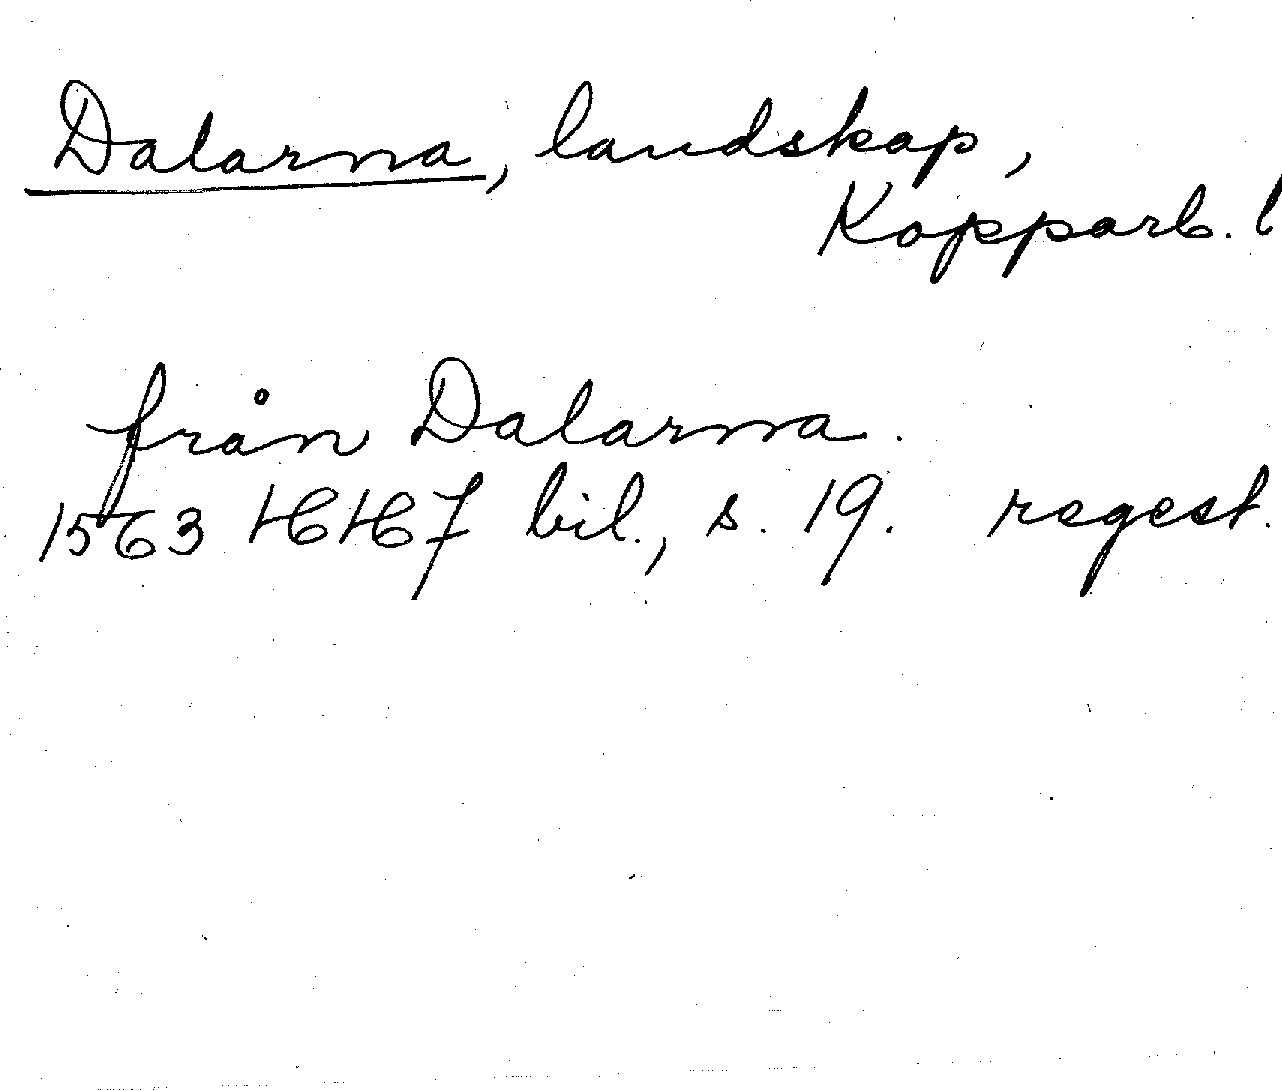 Dalarna, landskap,
Kopparb. l
från Dalarna.
1563 HH7 bil., s. 19. regest.